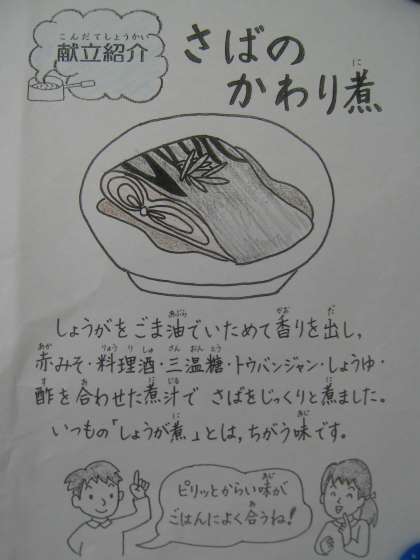 こんだてしょうかい
献立紹介
さばの
かわり煮
に
しょうがをごま油でいためて香りを出し,
あぶら
かお
だ
赤みそ・料理酒・三温糖・トウバンジャン・しょうゆ・
あか
りょう り しゅ
さん おん とう
酢を合わせた煮汁で さばをじっくりと煮ました。
す
あ
に じる
に
いつもの「しょうが煮」とは,ちがう味です。
に
あじ
ピリッとからい味が
あじ
ごはんによく合うね!
あ